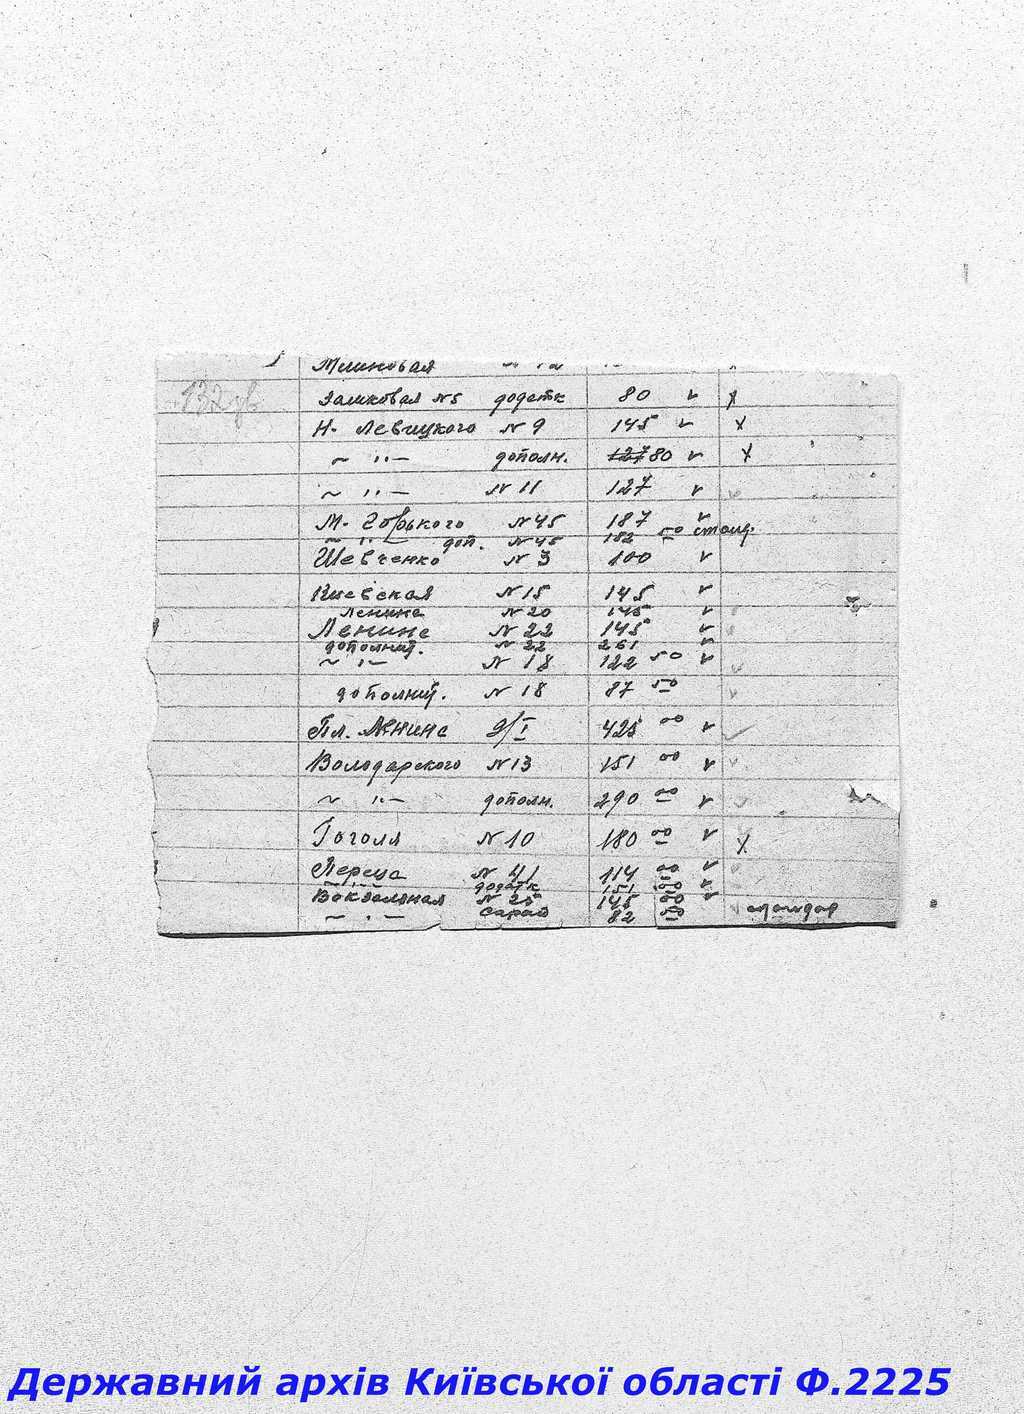 Млиновая
132 зв
Замковая №5 додатк 80 v x
Н. Левицкого №9 145 v x
~ " — дополн. 127 80 v x
~ " — №11 127 v v
М. Горького №45 187 v
~ " — доп. №45 182 50
Шевченко №3 100 v
Киевская №15 145 v
Ленина №20 145 v
Ленина №22 145 v
дополнит. №22 261 v
~ " — №18 122 50 v v
дополнит. №18 87 50 v
Пл. Ленина 2/I 425 00 v v
Володарского №13 151 00 v v
~ " — дополн. 290 00 v v
Гоголя №10 180 00 v x
Переца №41 114 00 v
~ " — додатк 151 00 v
Вокзальная №25 145 00 v
~ " — сарай 82 50
Державний архів Київської області Ф.2225